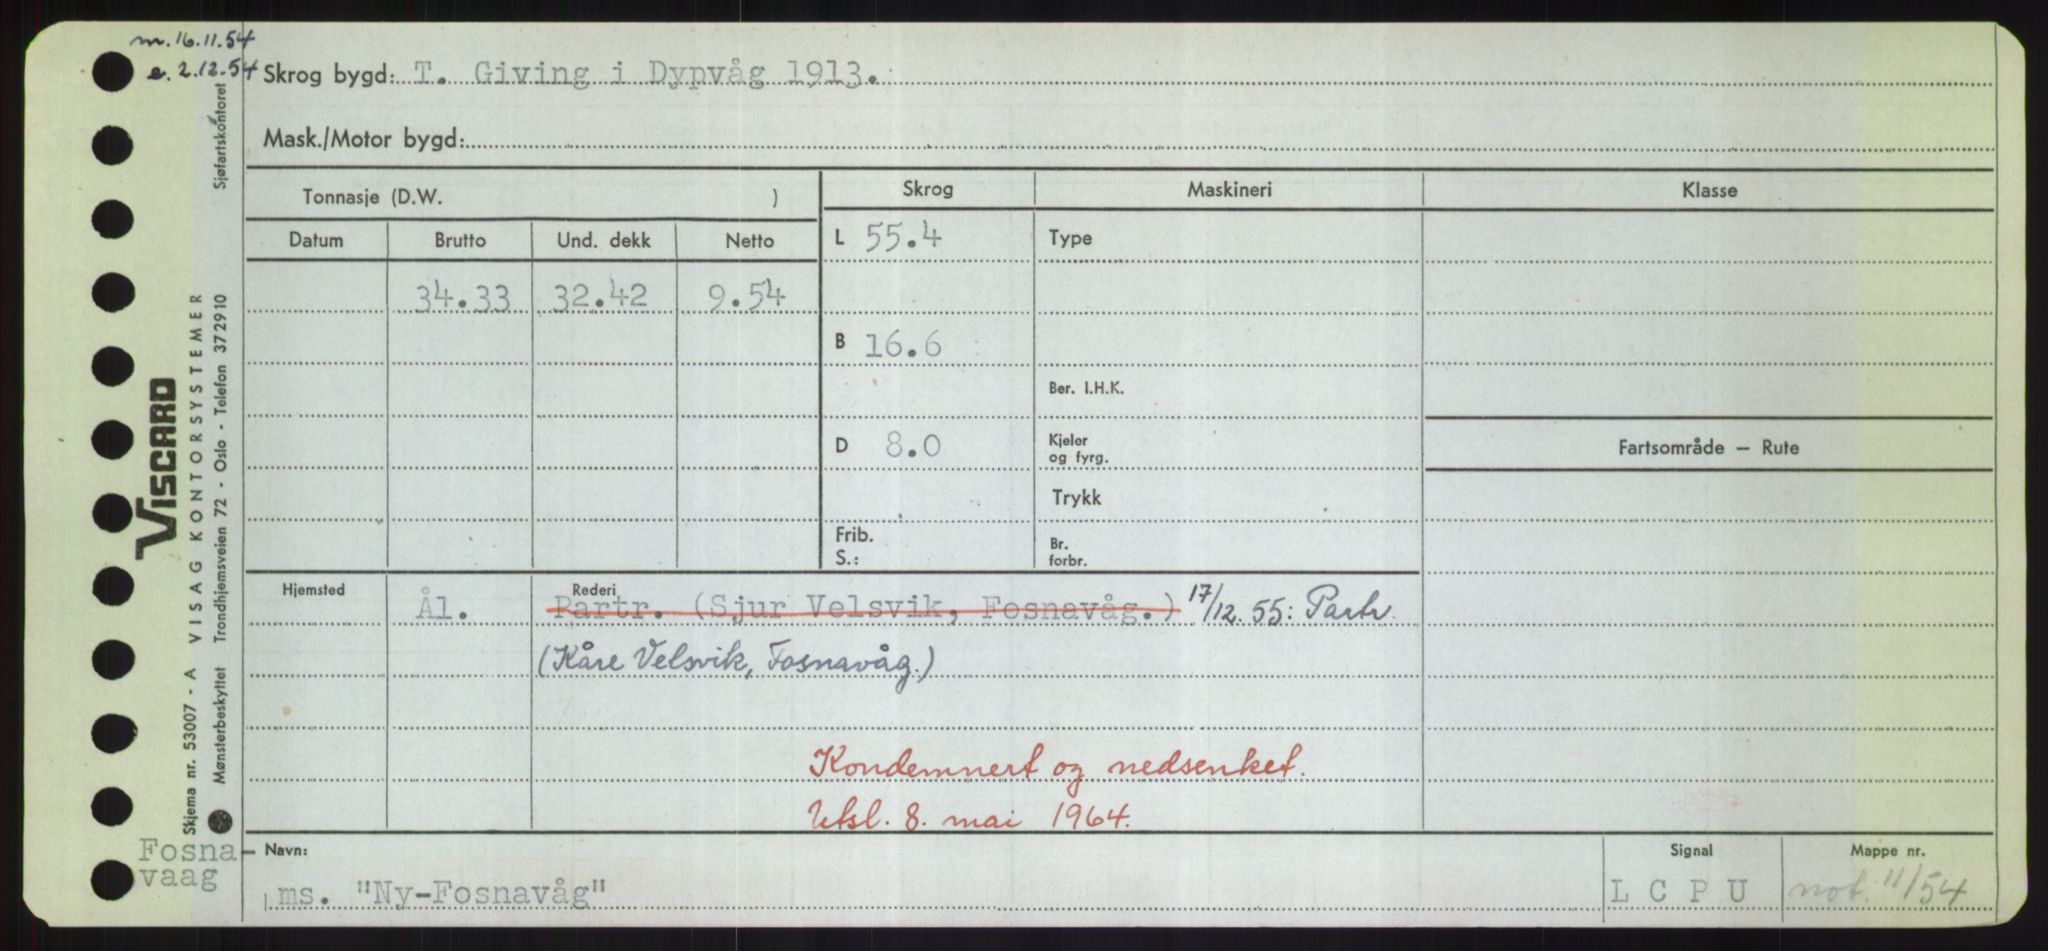 m. 16.11.54
e. 2.12.54
Skrog bygd: T. Giving i Dypvåg 1913.
Mask./Motor bygd:
Tonnasje (D.W. )
Skrog
Maskineri
Klasse
Datum
Brutto
Und. dekk
Netto
L 55.4
Type
34.33
32.42
9.54
B 16.6
Ber. I.H.K.
D 8.0
Kjeler
og fyrg.
Fartsområde — Rute
Trykk
Frib.
S.:
Br.
forbr.
Hjemsted
Ål.
Rederi
Partr. (Sjur Velsvik, Fosnavåg.) 17/12.55: Partr.
(Kåre Velsvik, Fosnavåg.)
Kondemnert og nedsenket.
Utsl. 8. mai 1964.
Fosna-
vaag
Navn:
ms. "Ny-Fosnavåg"
Signal
L C P U
Mappe nr.
not. 11/54
VISCARD
Skjema nr. 53007 - A VISAG KONTORSYSTEMER
Mønsterbeskyttet Trondhjemsveien 72 - Oslo - Telefon 372910
Sjøfartskontoret